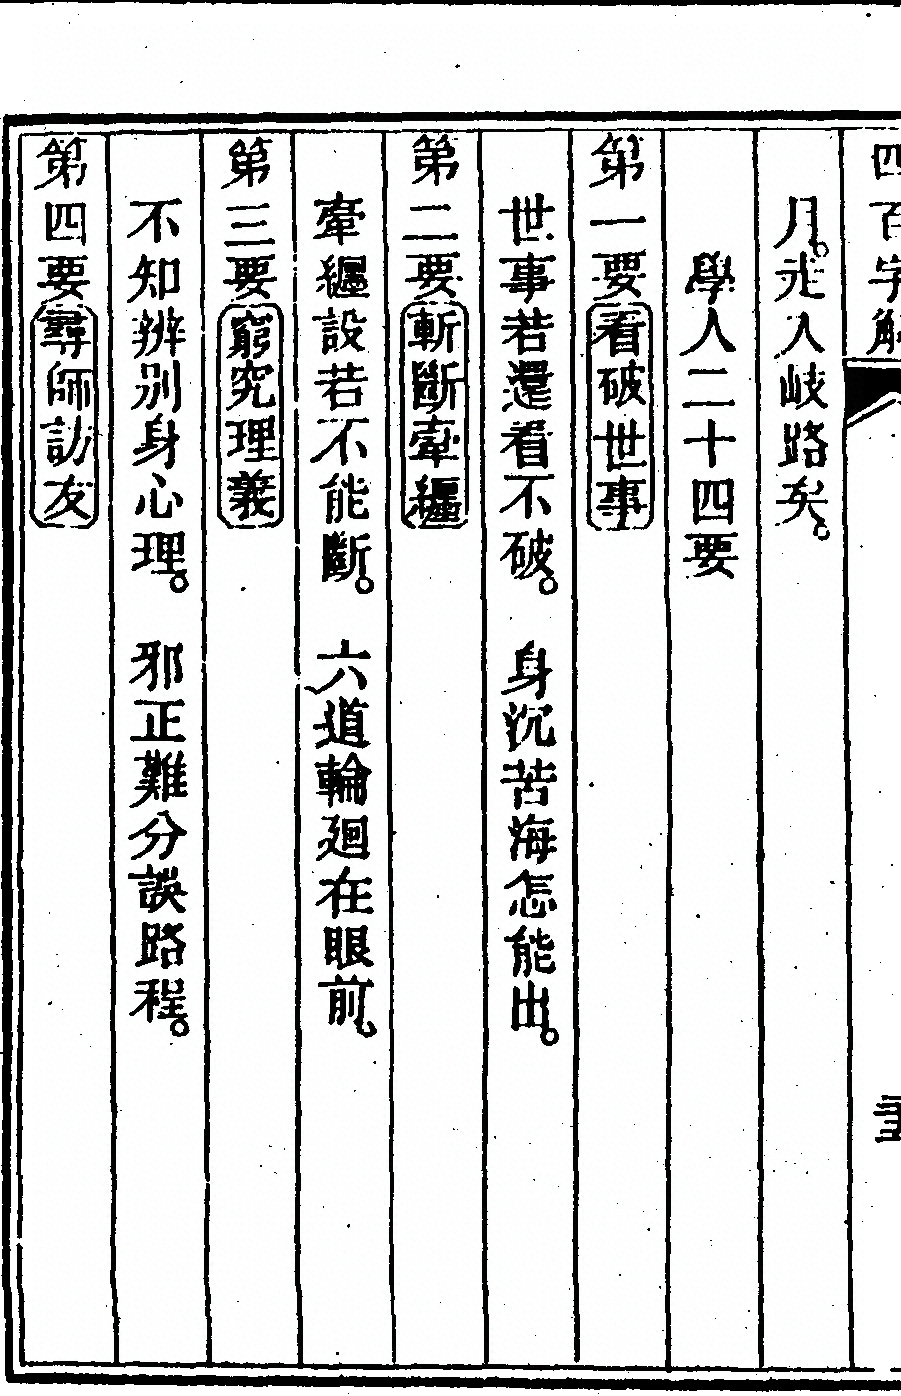 四百字解
月。走入岐路矣。
學人二十四要
第一要看破世事
世事若還看不破。　身沉苦海怎能出。
第二要斬斷牽纏
牽纏設若不能斷。　六道輪廻在眼前。
第三要窮究理義
不知辨别身心理。　邪正難分誤路程。
第四要尋師訪友